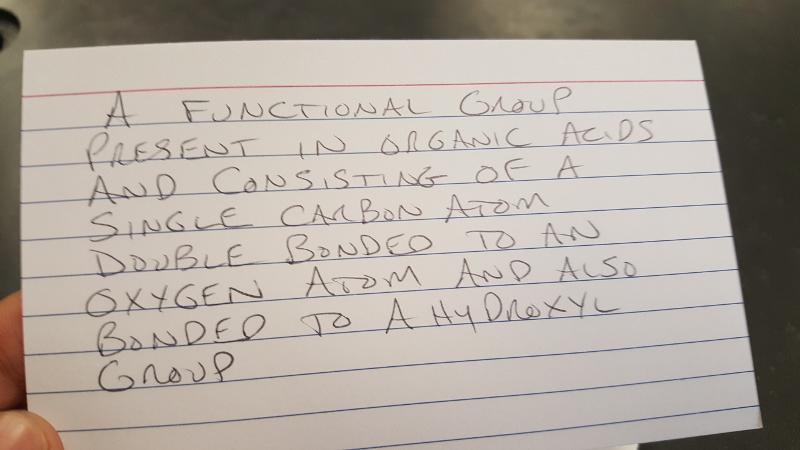 A FUNCTIONAL GROUP
PRESENT IN ORGANIC ACIDS
AND CONSISTING OF A
SINGLE CARBON ATOM
DOUBLE BONDED TO AN
OXYGEN ATOM AND ALSO
BONDED TO A HYDROXYL
GROUP